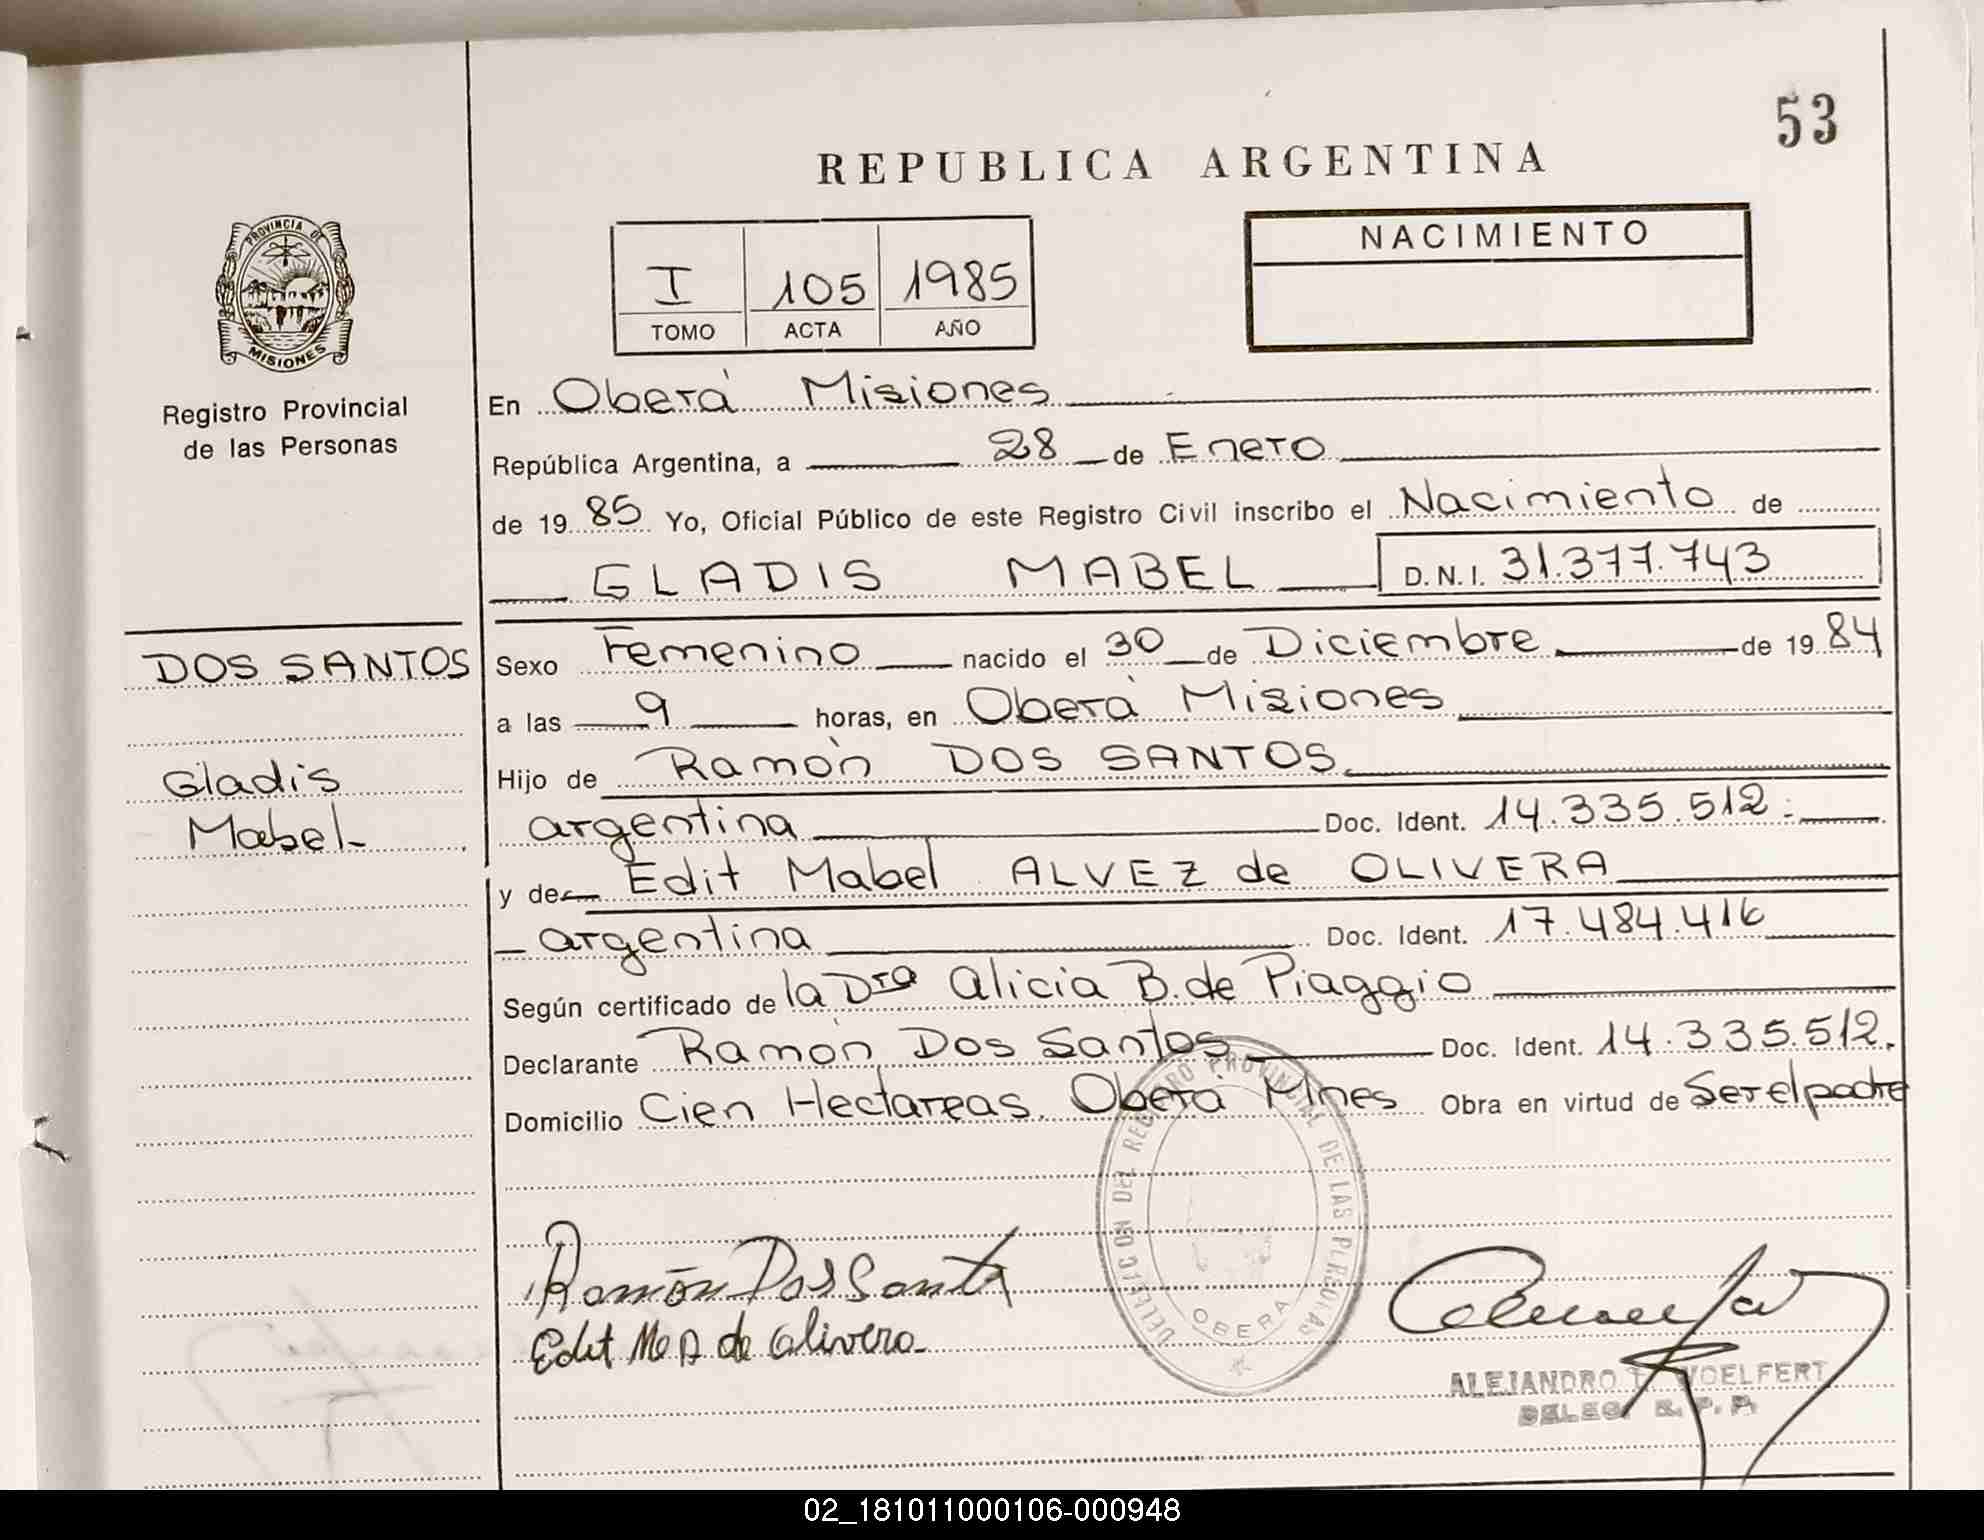 53
REPUBLICA ARGENTINA
PROVINCIA DE
MISIONES
Registro Provincial
de las Personas
I 105 1985
TOMO ACTA AÑO
NACIMIENTO
En Oberá Misiones
República Argentina, a 28 de Enero
de 1985 Yo, Oficial Público de este Registro Civil inscribo el Nacimiento de
GLADIS MABEL D.N.I. 31.377.743
DOS SANTOS
Gladis
Mabel
Sexo Femenino nacido el 30 de Diciembre de 1984
a las 9 horas, en Oberá Misiones
Hijo de Ramón DOS SANTOS
argentina Doc. Ident. 14.335.512
y de Edit Mabel ALVEZ de OLIVERA
argentina Doc. Ident. 17.484.416
Según certificado de la Dra Alicia B. de Piaggio
Declarante Ramón Dos Santos Doc. Ident. 14.335.512.
Domicilio Cien Hectareas. Oberá Mnes Obra en virtud de Ser el padre
DELEGCION DEL REGISTRO PROVINCIAL DE LAS PERSONAS
OBERA
Ramón Dos Santos
Edit M A de Olivera
ALEJANDRO WOELFERT
DELEG. R.P.P.
02_181011000106-000948